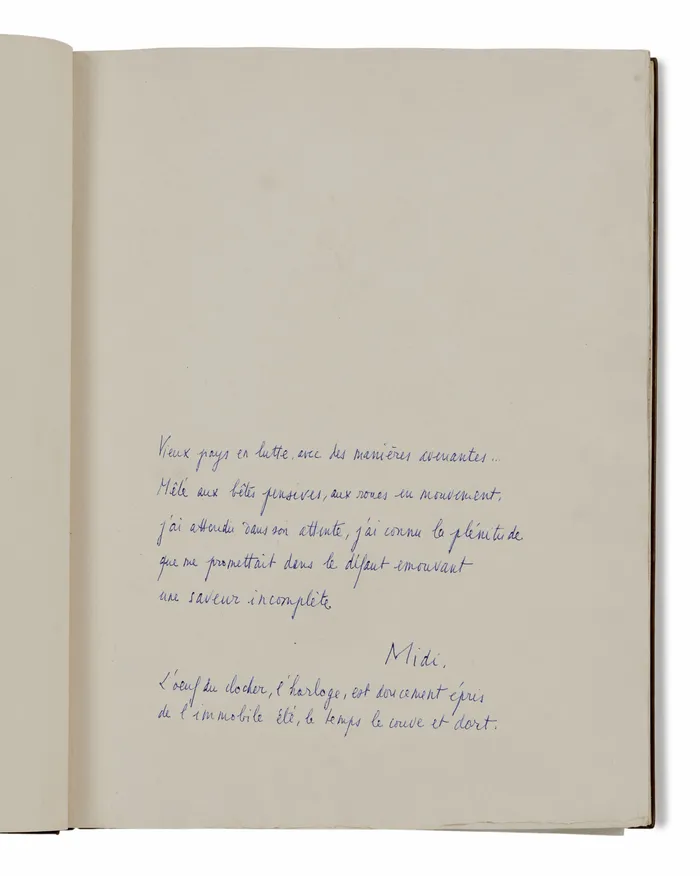 Vieux pays en lutte, avec des manières avenantes...
Mêlé aux bêtes pensives, aux roues en mouvement,
j'ai attendu dans son attente, j'ai connu la plénitude
que me promettait dans le défaut émouvant
une saveur incomplète.
Midi.
L'oeuf du clocher, l'horloge, est doucement épris
de l'immobile été, le temps le couve et dort.